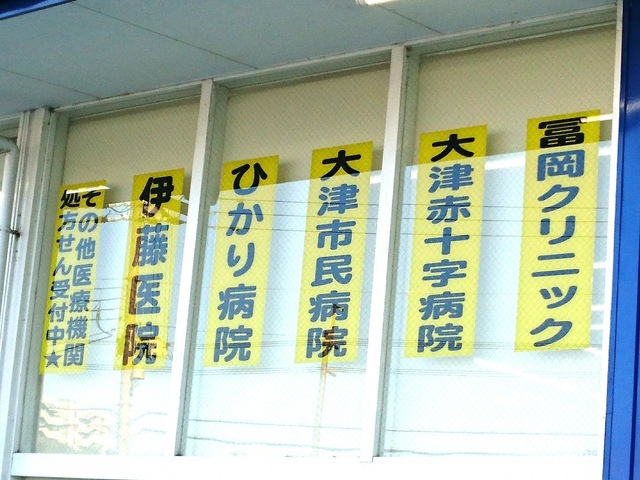 冨岡クリニック
大津赤十字病院
大津市民病院
ひかり病院
伊藤医院
その他医療機関
処方せん受付中★